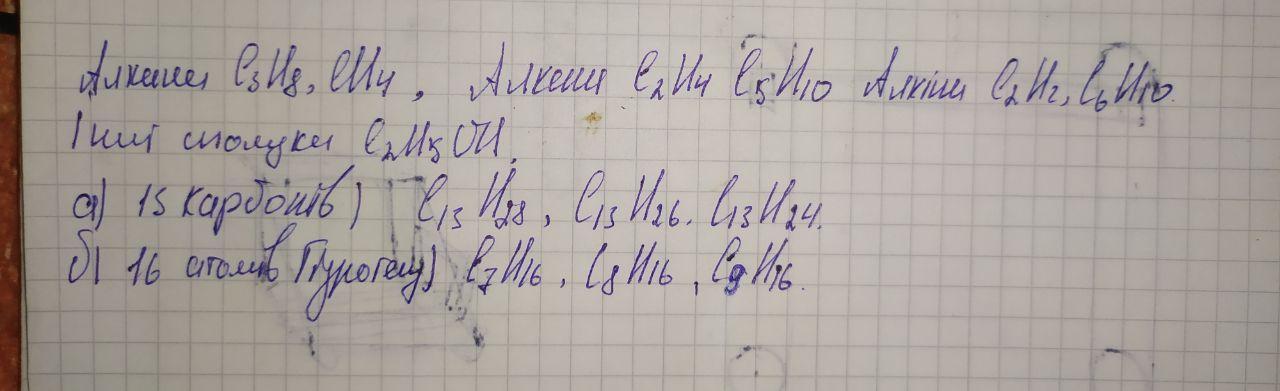 Алкани C₃H₈, CH₄, Алкени C₂H₄ C₅H₁₀ Алкіни C₂H₂, C₆H₁₀.
Інші сполуки C₂H₅OH.
а) 13 карбонів) C₁₃H₂₈, C₁₃H₂₆. C₁₃H₂₄.
б) 16 атомів Гідрогену) C₇H₁₆, C₈H₁₆, C₉H₁₆.